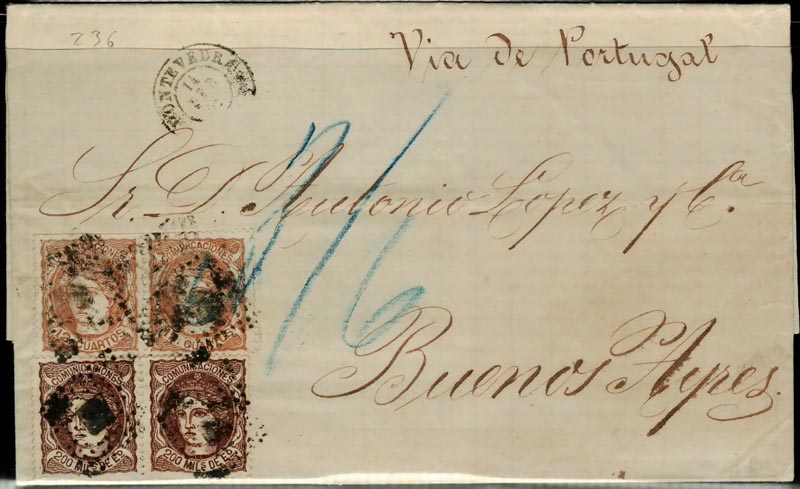 236
Via de Portugal
PONTEVEDRA
14
Sr. D. Antonio Lopez y Cª.
Buenos Ayres.
COMUNICACIONES COMUNICACIONES
12 CUARTOS CUARTOS
COMUNICACIONES COMUNICACIONES
200 MILS DE ES 200 MILS DE ES